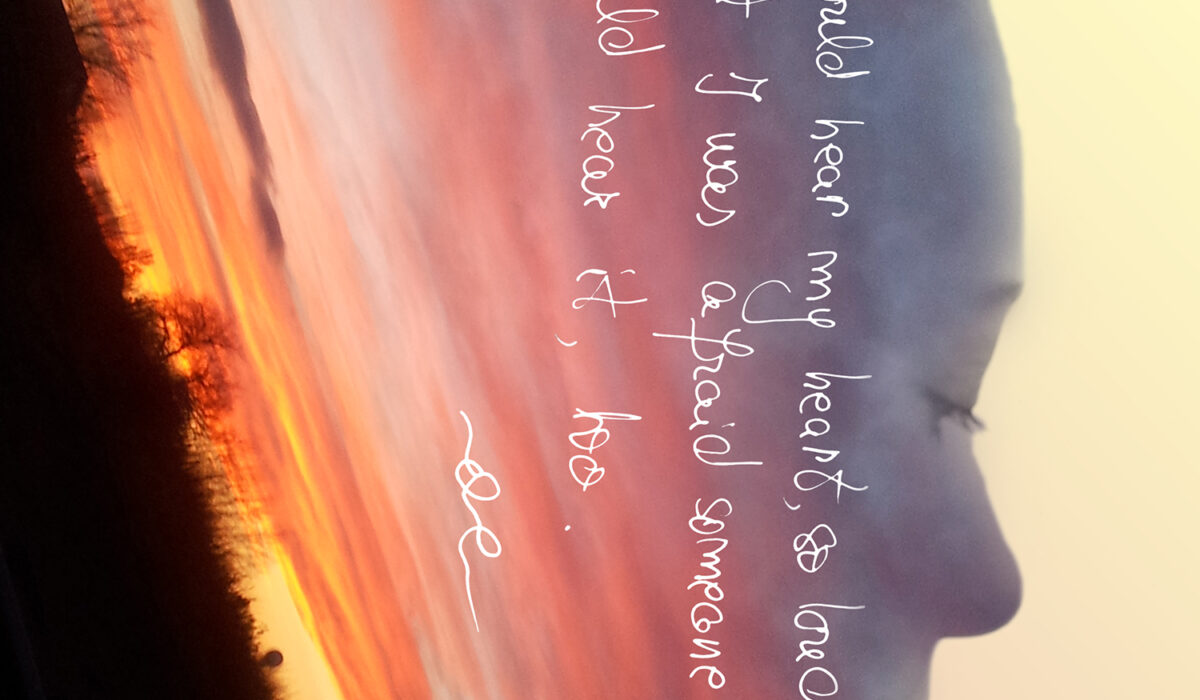 ould hear my heart, so loud
t I was afraid someone
ld hear it, too.